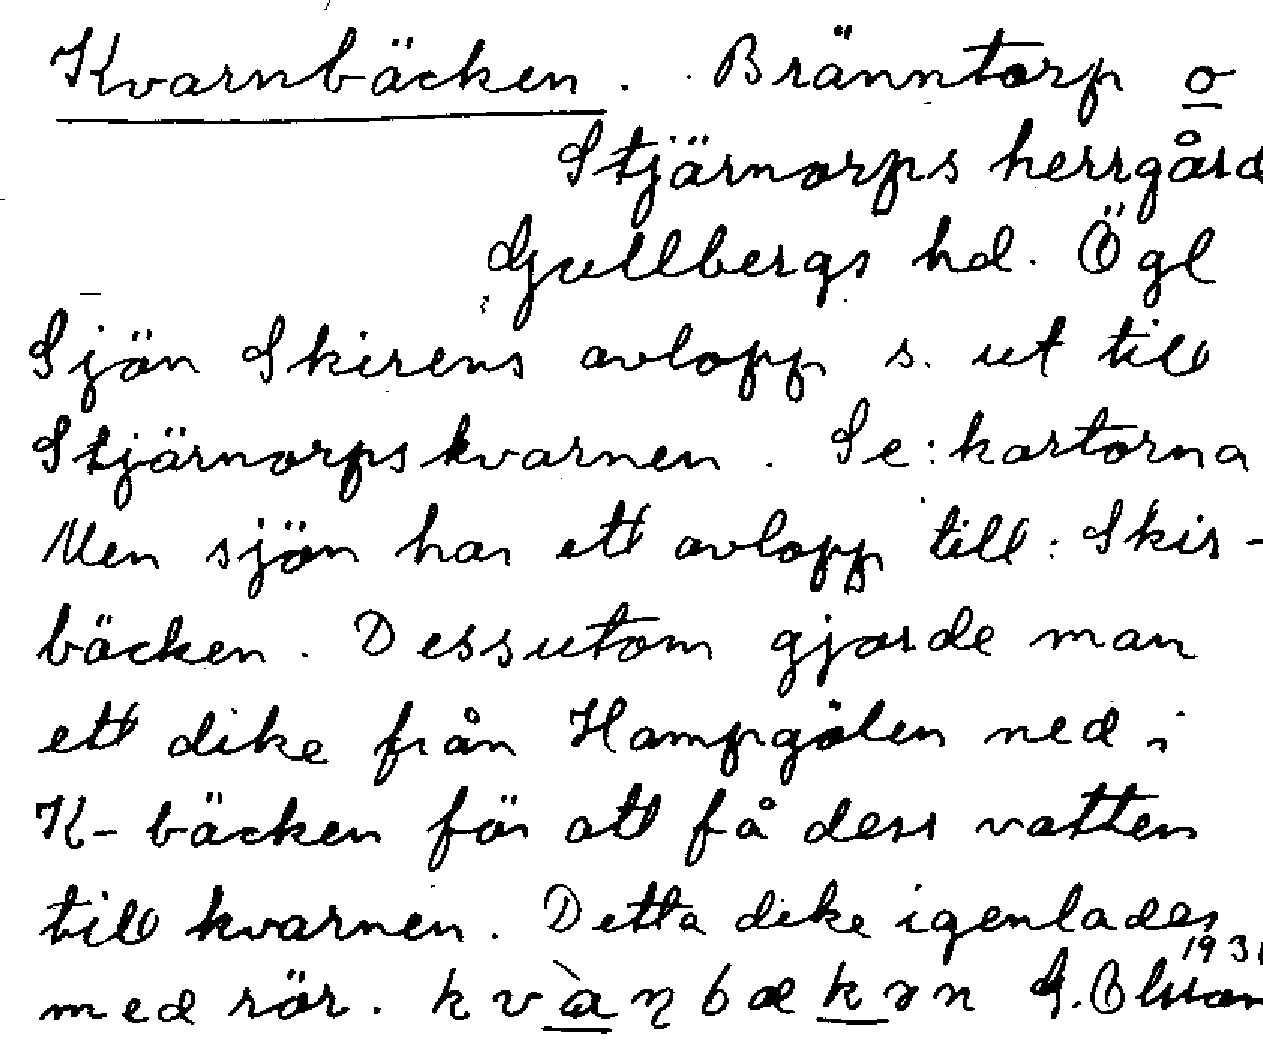 Kvarnbäcken. Bränntorp o
Stjärnorps herrgård
Gullbergs hd. Ögl
Sjön Skirens avlopp s. ut till
Stjärnorpskvarnen. Se: kartorna
Men sjön har ett avlopp till: Skir-
bäcken. Dessutom gjorde man
ett dike från Hampgölen ned i
K-bäcken för att få dess vatten
till kvarnen. Detta dike igenlades
1931
med rör. kvànbækən G. Olsson